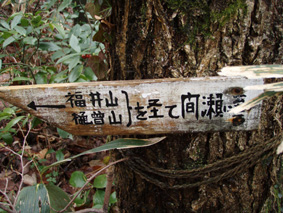 福井山
樋曽山
を圣て間瀬